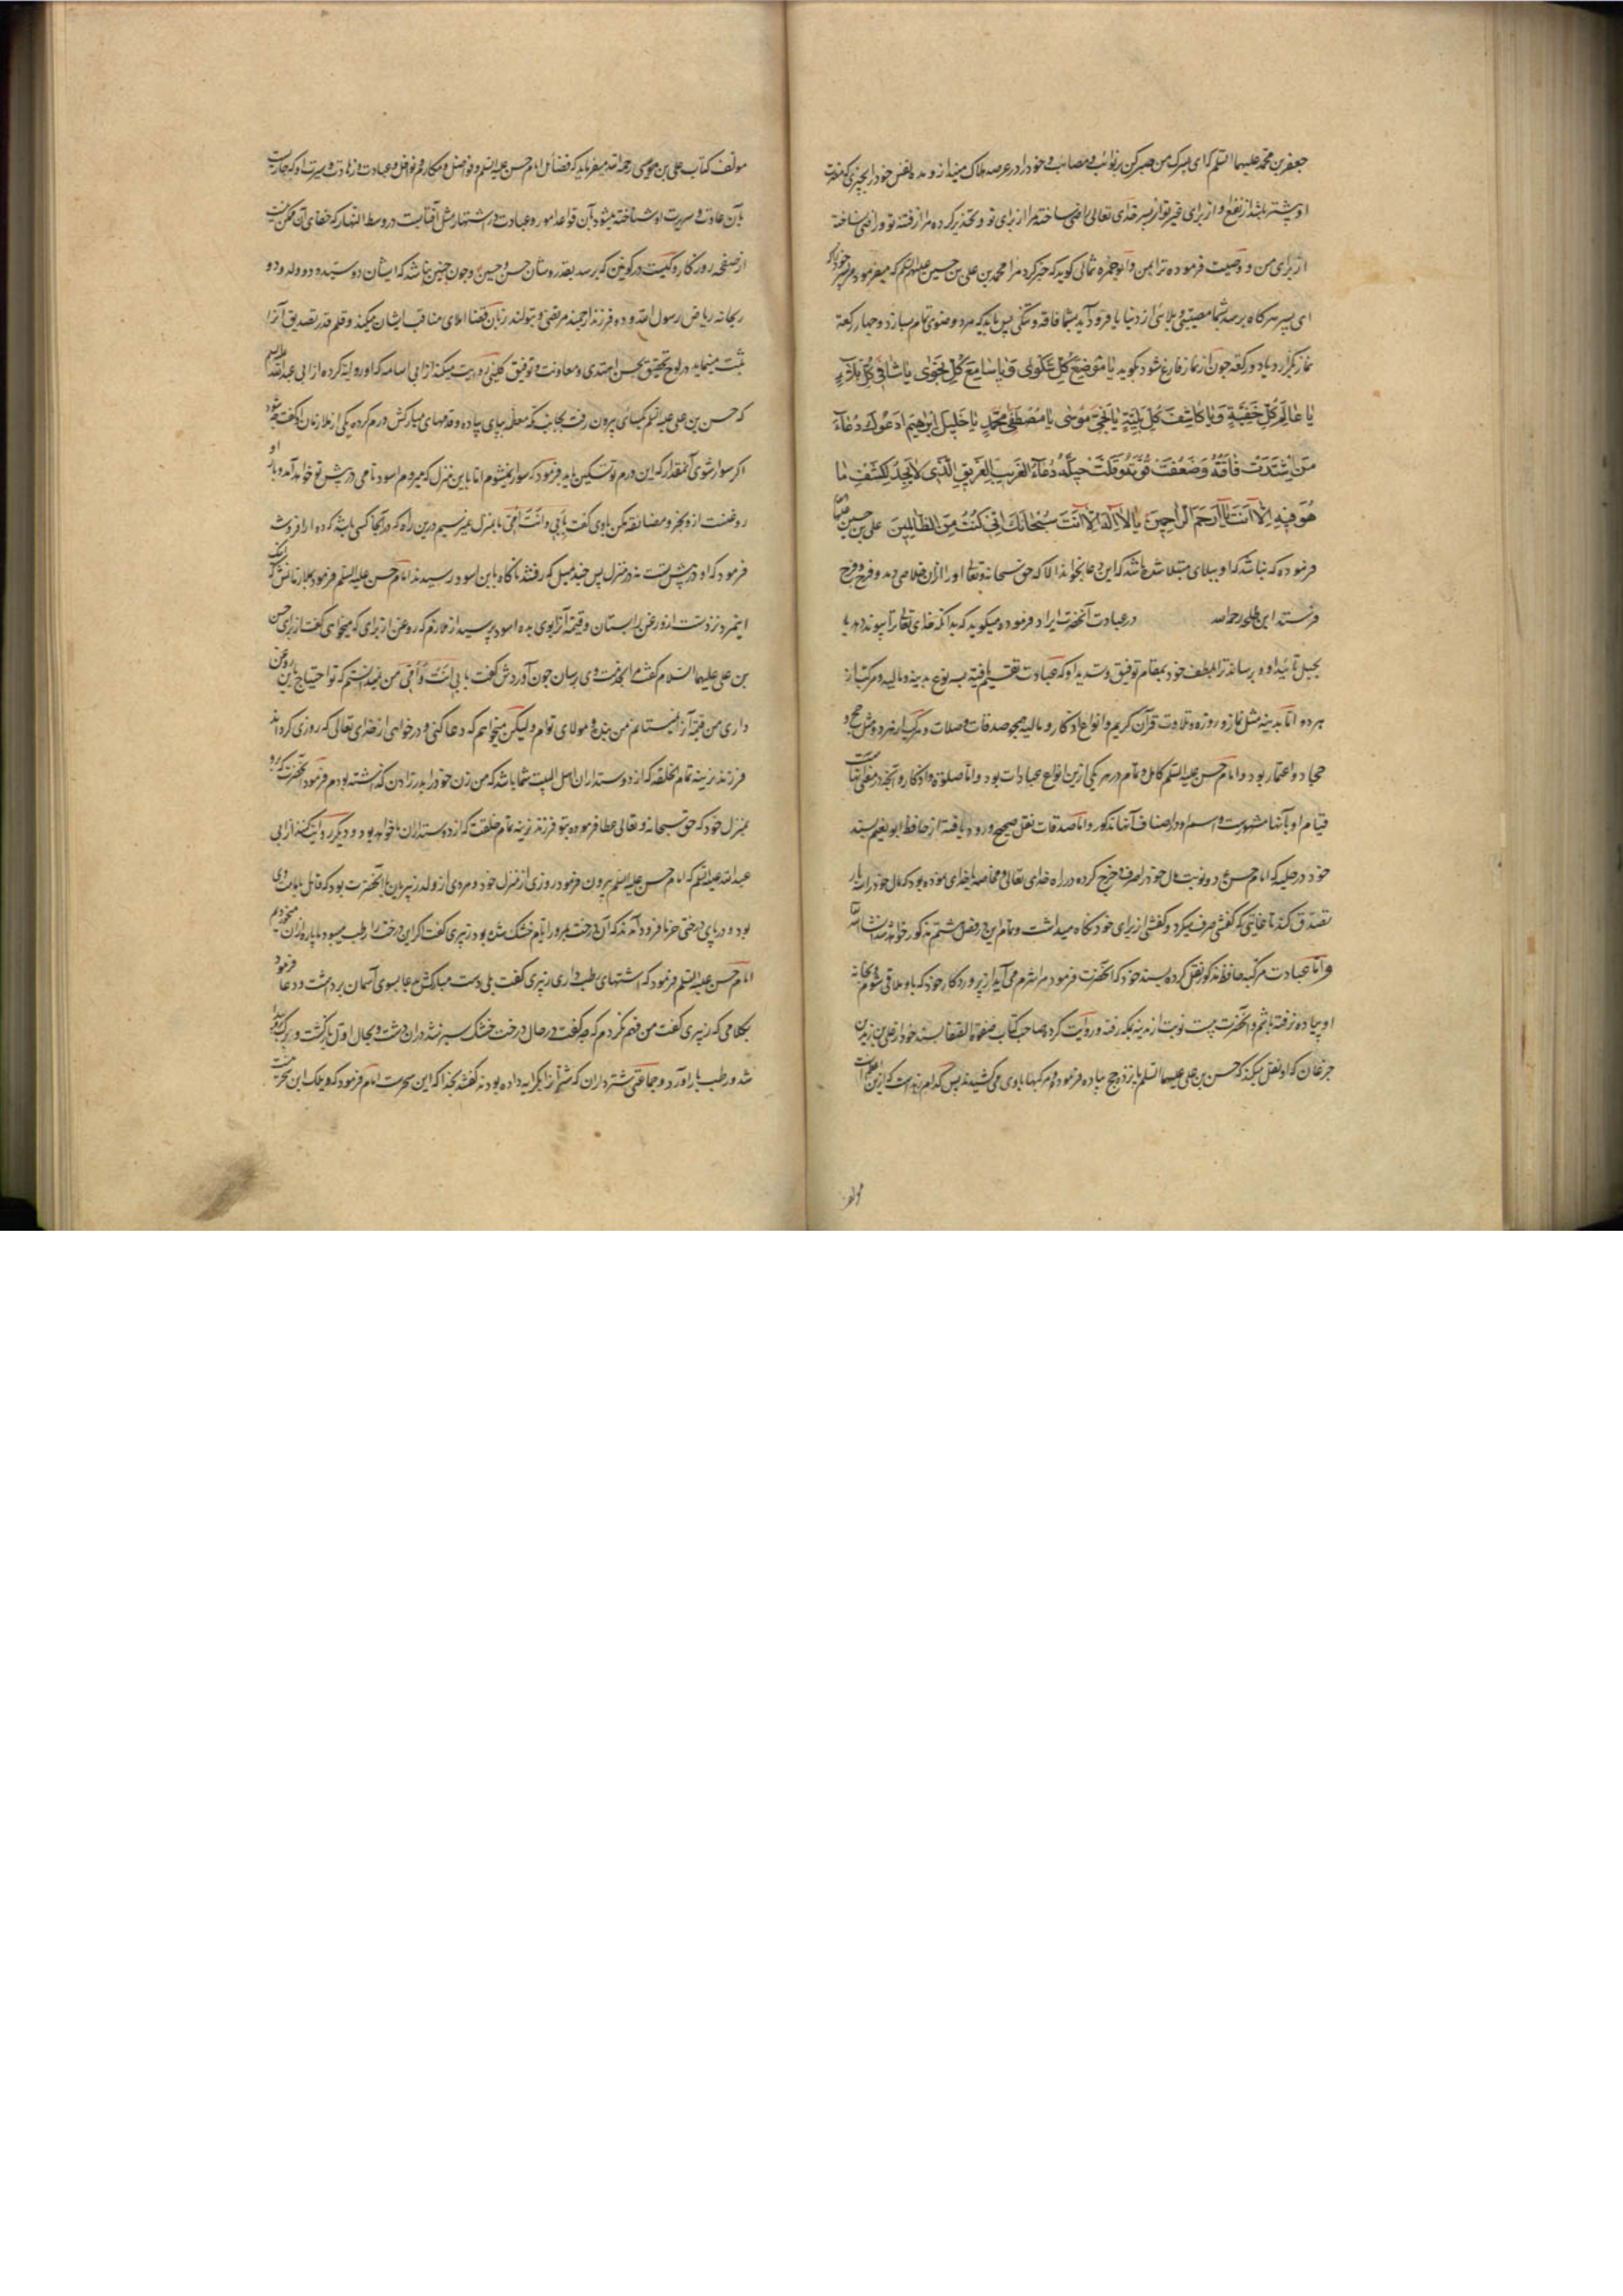 جعفر بن محمد علیهما السلم که ای پسرک من صبر کن بر نوائب و مصائب و خود را در عرصه هلاک مینداز و مده نفس خود را بچیزی که مضرت
او بیشتر باشد از نفع او از برای غیر تو ای پسر خدای تعالی راضی ساخته مرا از برای تو و تحذیر کرده مرا از فتنه تو و راضی نساخته
از برای من و وصیت فرموده ترا بمن و ابو حمزه ثمالی کوید که خبر کرد مرا محمد بن علی بن حسین علیهم السلم که میفرمود مر پسر خود را که
ای پسر هر کاه برسد بشما مصیبتی و بلائی از دنیا یا فرود آید بشما فاقه و تنکی پس باید که مرد وضوی تمام بسازد و چهار رکعة
نماز بکزارد یا دو رکعه چون از نماز فارغ شود بکوید یا موضع کل شکوی و یا سامع کل نجوی یا شافی کل بلاء
یا عالم کل خفیة و یا کاشف کل بلیة یا نجی موسی یا مصطفی محمد یا خلیل ابرهیم ادعوک دعاء
من اشتدت فاقته و ضعفت قوته و قلت حیلته دعاء الغریب الغریق الذی لا یجد لکشف ما
هو فیه الا انت یا ارحم الراحمین یا لا اله الا انت سبحانک انی کنت من الظالمین علی بن حسین علیهما السلم
فرموده که نباشد که او ببلای مبتلا شده باشد که این دعا بخواند الا که حق سبحانه و تعالی او را ازان خلاصی دهد و فرج و فرح
فرستد ابن طلحه رحمه الله در عبادت آنحضرت ایراد فرموده میکوید که بدانکه خدای تعالی ترا پیوند دهد با
بحبل تائید او و برساند ترا بلطف خود بمقام توفیق و تسدید او که عبادت تقسیم یافته بسه نوع بدنیه و مالیه و مرکب از
هر دو اما بدنیه مثل نماز و روزه و تلاوت قرآن کریم و انواع اذکار و مالیه همچو صدقات و صلات و مرکب از هر دو مثل حج و
جهاد و اعتمار بود و امام حسن علیه السلم کامل و تمام در هر یکی ازین انواع عبادات بود و اما صلوة و اذکار و آنچه در معنی آنهاست
قیام او بآنها مشهورست و اسم او در اصناف آنها مذکور و اما صدقات نقل صحیح ورود یافته از حافظ ابو نعیم بسند
خود در حلیه که امام حسن ع دو نوبت مال خود را صرف و خرج کرده در راه خدای تعالی و مقاسمه با خدای نموده بود که مال خود را سه بار
تصدق کند تا غایتی که کفشی صرف میکرد و کفشی از برای خود نکاه میداشت و تمام این در فصل هشتم مذکور خواهد شد انشاء الله
و اما عبادت مرکبه حافظ مذکور نقل کرده بسند خود که آنحضرت فرمود مرا شرم می آید از پروردکار خود که باو ملاقی شوم و بخانه
او پیاده نرفته باشم و آنحضرت بیست نوبت از مدینه بمکه رفته و روایت کرده صاحب کتاب صفوة الصفا بسند خود از علی بن زید بن
جرغان که او نقل میکند که حسن بن علی علیهما السلم پانزده حج پیاده فرمود و مرکبها با وی می کشیدند پس کدام زهدست که ازین اعظم است
مولف
مولف کتاب علی بن عیسی رحمه الله میفرماید که فضائل امام حسن علیه السلم و فواضل و مکارم و نوافل و عبادت و زهادت و سیرت او که جاریست
بآن عادت و سریرت او شناخته میشود بآن قواعد امور و عبادت در اشتهار مثل آفتابست در وسط النهار که خفای آن ممکن نیست
از صفحه روزکار و کیست در کونین که برسد بقدر و شان حسن و حسین و چون چنین نباشد که ایشان دو سیّد و دو ولد و دو
ریحانه ریاض رسول الله و دو فرزند ارجمند مرتضی و بتولند زبان قضا املای مناقب ایشان میکند و قلم قدر تصدیق آنرا
ثبت مینماید در لوح تحقیق بحسن اهتدی و معاونت و توفیق کلینی روایت میکند از ابی اسامه که او روایة کرده از ابی عبدالله علیه السلم
که حسن بن علی علیه السلم یکسالی بیرون رفت بجانب مکه معظمه بپای پیاده و قدمهای مبارکش ورم کرده یکی از ملازمان او کفت چه شود
اکر سوار شوی آنمقدار که این ورم تو تسکین یابد فرمود که سوار نمیشوم اما باین منزل که میروم اسود نامی در پیش تو خواهد آمد و با او
روغنست ازو بخر و مضائقه مکن باوی کفت بابی و انت امی ما بمنزل غیر نسیم درین راه که در آنجا کسی باشد که دوا را فروشد
فرمود که او در پیش تست نه در منزل پس چند میل که رفتند ناکاه باین اسود رسیدند امام حسن علیه السلم فرمود بملازمانش که اینک
اینمرد نزد تست ازو روغن را بستان و قیمة آنرا بوی بده اسود پرسید از ملازم که روغن از برای که میخواهی کفت از برای حسن
بن علی علیهما السلام کفت مرا بخدمت وی رسان چون آوردش کفت بابی انت و امی من نمیدانستم که تو احتیاج باین روغن
داری من قیمة آنرا نستانم من بنده و مولای توام ولیکن میخواهم که دعا کنی و درخواهی از خدای تعالی که روزی کرداند
فرزند نرینه تمام الخلقه که از دوستداران اهل البیت شما باشد که من زن خود را بدرد زادن کذاشته بودم فرمود آنحضرت که برو
بمنزل خود که حق سبحانه و تعالی عطا فرموده بتو فرزند نرینه تمام خلقت که از دوستداران ما خواهد بود و دیکر روایت کند از ابی
عبدالله علیه السلم که امام حسن علیه السلم بیرون فرمود روزی از منزل خود و مردی از ولد زبیر با آنحضرت بود که قائل بامامت وی
بود و در پای درختی خرما فرود آمدند که آن درخت بمرور ایام خشک شده بود زبیری کفت اکر این درخت را رطب میبود ما پاره ازان میخوردیم
امام حسن علیه السلم فرمود که اشتهای رطب داری زبیری کفت بلی دست مبارکش بدعا بسوی آسمان برداشت و دعا فرمود
بکلامی که زبیری کفت من فهم نکردم که چه کفت در حال درخت خشک سبز شد دران دشت و بحال اول بازکشت و برک پیدا
شد و رطب بار آورد و جماعتی شترداران که شتر از ایشان بکرایه داده بودند کفتند بخدا که این سحرست امام فرمود که ویلک این سحر نیست